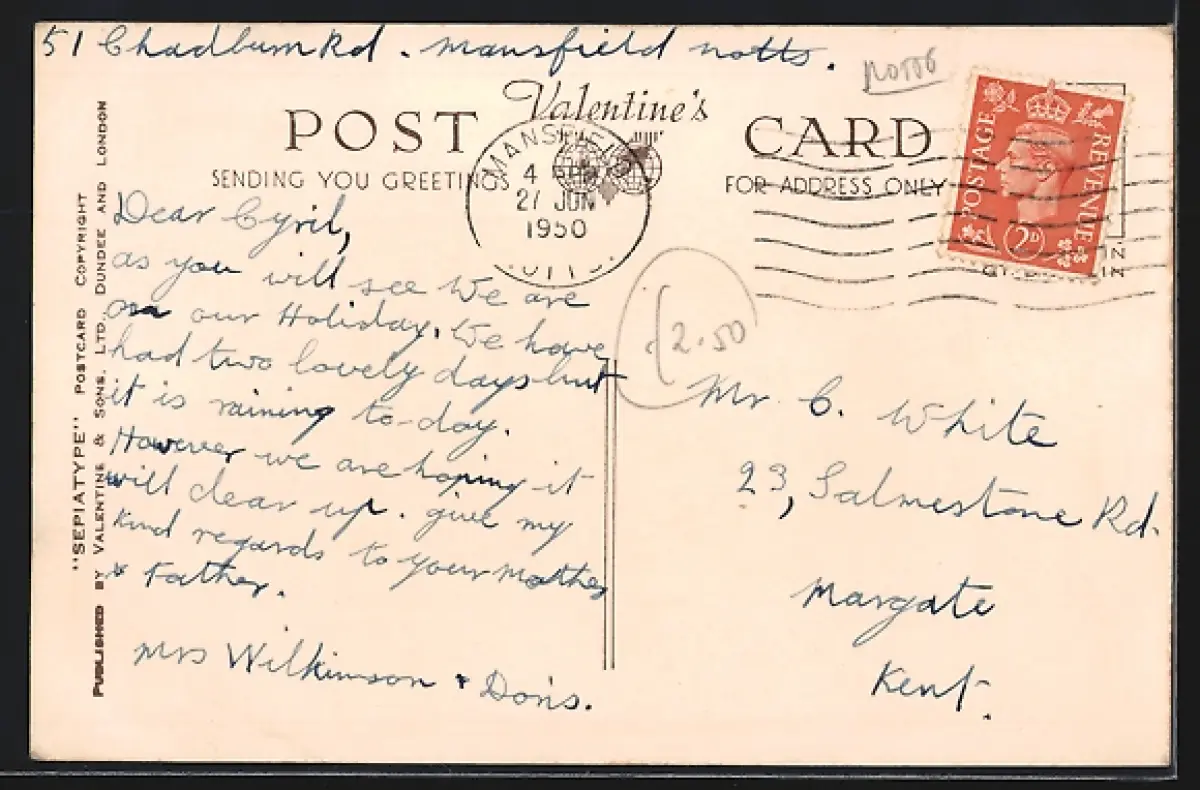 51 Chadburn Rd. Mansfield Notts.
Notts
Valentine's
POST CARD
SENDING YOU GREETINGS
FOR ADDRESS ONLY
MANSFIELD
4 PM
27 JUN
1950
NOTTS.
POSTAGE REVENUE
2D
IN
IN
"SEPIATYPE" POSTCARD COPYRIGHT
PUBLISHED BY VALENTINE & SONS, LTD., DUNDEE AND LONDON
Dear Cyril,
as you will see We are
on our Holiday. We have
had two lovely days but
it is raining to-day.
However we are hoping it
will clear up. give my
kind regards to your Mother
& Father.
Mrs Wilkinson & Doris.
2.50
Mr C. White
23, Salmestone Rd.
Margate
Kent.